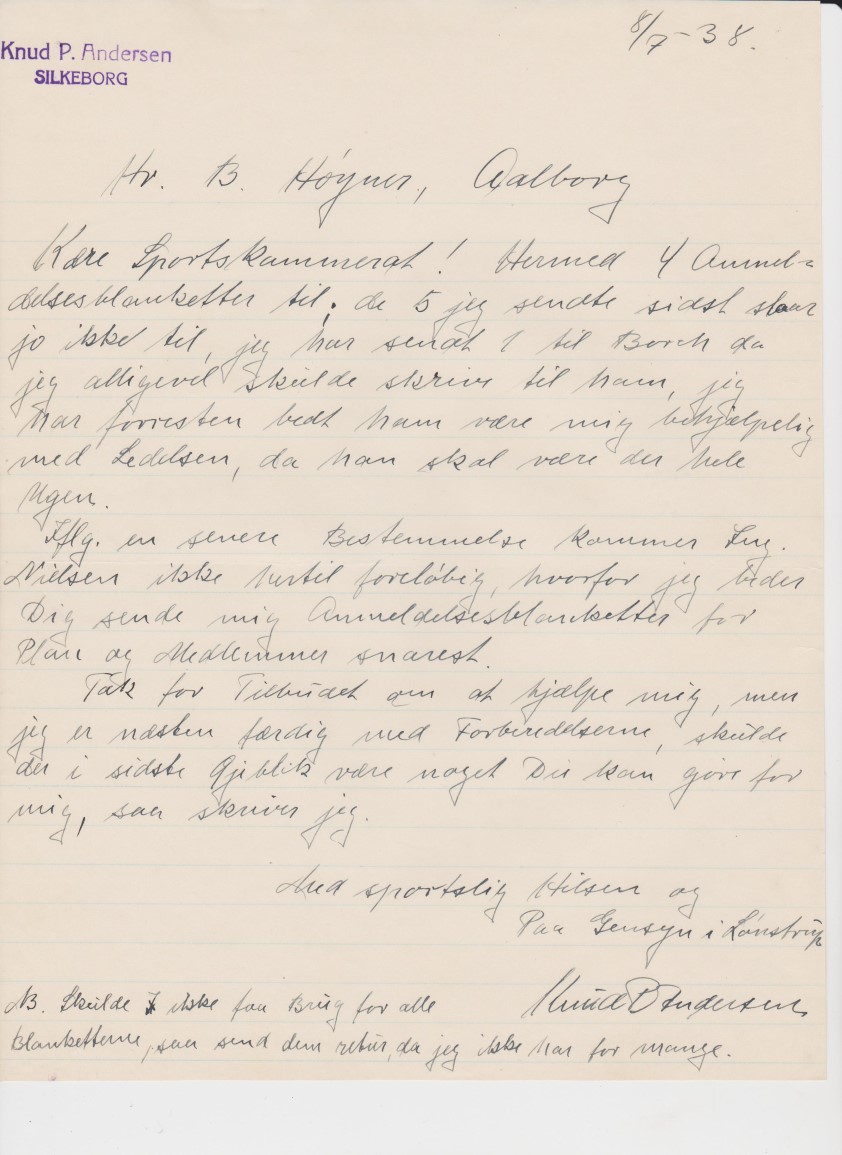 8/7-38.
Knud P. Andersen
SILKEBORG
Hr. B. Høyner, Aalborg
Kære Sportskammerat! Hermed 4 Anmel-
delsesblanketter til; de 5 jeg sendte sidst slaar
jo ikke til, jeg har sendt 1 til Borch da
jeg alligevel skulde skrive til ham, jeg
har forresten bedt ham være mig behjælpelig
med Ledelsen, da han skal være der hele
Ugen.
Iflg. en senere Bestemmelse kommer Ing.
Nielsen ikke hertil foreløbig, hvorfor jeg beder
Dig sende mig Anmeldelsesblanketter for
Plan og Medlemmer snarest.
Tak for Tilbudet om at hjælpe mig, men
jeg er næsten færdig med Forberedelserne, skulde
der i sidste Øjeblik være noget Du kan gøre for
mig, saa skriver jeg.
Med sportslig Hilsen og
Paa Gensyn i Lønstrup
Knud P Andersen
NB. Skulde I ikke faa Brug for alle
Blanketterne, saa send dem retur, da jeg ikke har for mange.